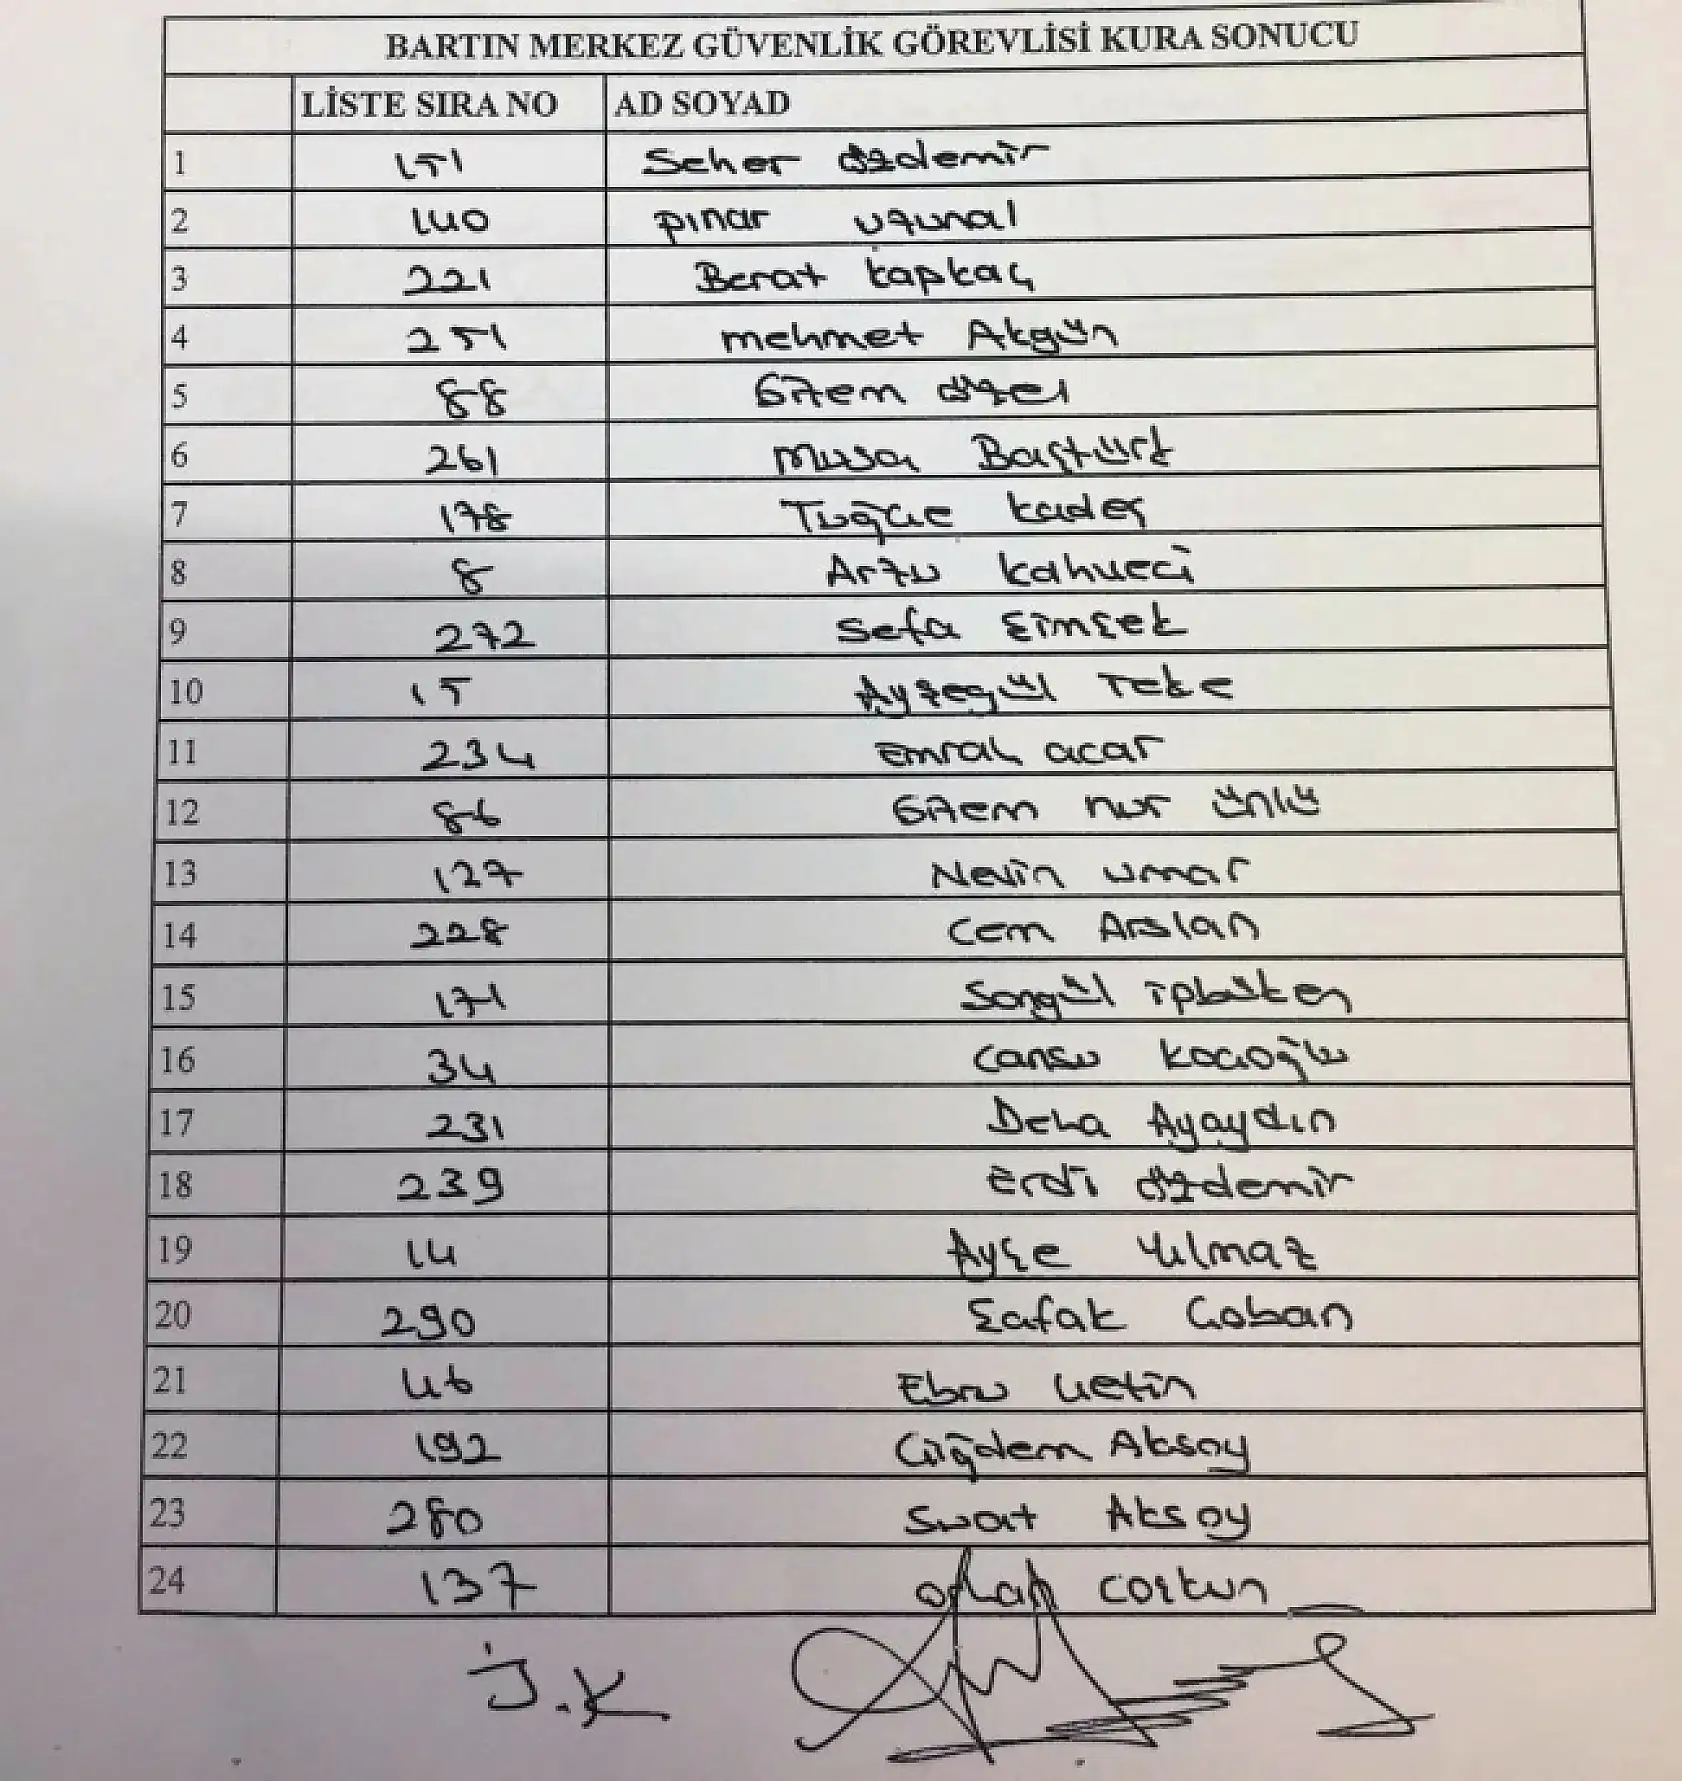 BARTIN MERKEZ GÜVENLİK GÖREVLİSİ KURA SONUCU
LİSTE SIRA NO AD SOYAD
1 151 Seher özdemir
2 140 pınar uzunal
3 221 Berat kapkaç
4 251 mehmet Akgün
5 88 Gizem özel
6 261 musa Baştürk
7 178 Tuğçe kadeş
8 8 Arzu kahveci
9 272 Sefa Şimşek
10 15 Ayşegül Teke
11 234 emrah acar
12 86 Gizem nur ünlü
13 127 Nevin umar
14 228 Cem Arslan
15 171 Songül
16 34 cansu kocaoğlu
17 231 Deha Ayaydın
18 239 Erdi özdemir
19 14 Ayşe Yılmaz
20 290 Şafak Çoban
21 46 Ebru Çetin
22 192 Çiğdem Aksoy
23 280 Suat Aksoy
24 137 coşkun
İ.K